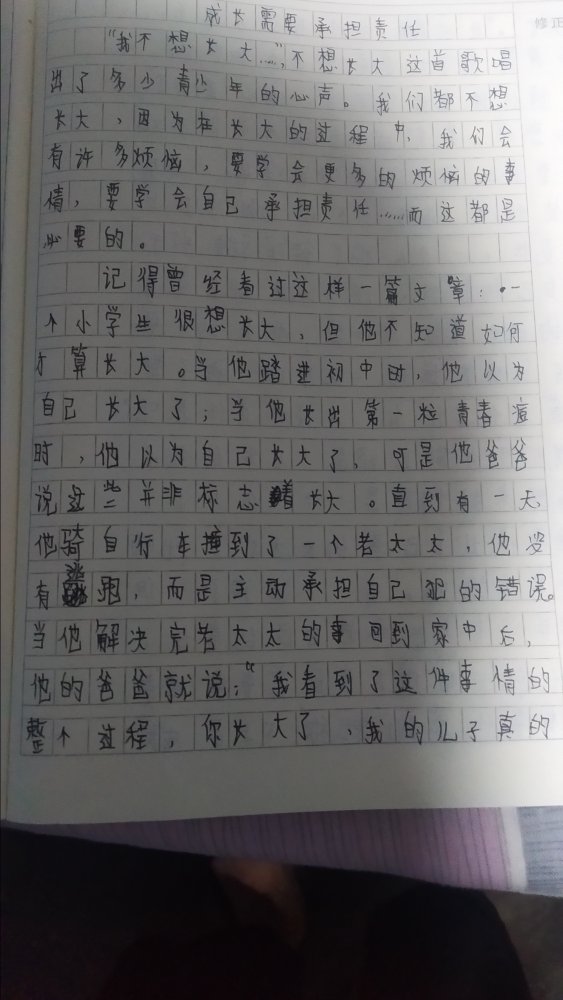 修正
成长需要承担责任
“我不想长大……”,不想长大这首歌唱
出了多少青少年的心声。我们都不想
长大,因为在长大的过程中,我们会
有许多烦恼,要学会更多的烦恼的事
情,要学会自己承担责任……而这都是
必要的。
记得曾经看过这样一篇文章:一
个小学生很想长大,但他不知道如何
才算长大。当他踏进初中时,他以为
自己长大了;当他长出第一粒青春痘
时,他以为自己长大了,可是他爸爸
说这些并非标志着长大。直到有一天
他骑自行车撞到了一个老太太,他没
有逃跑,而是主动承担自己犯的错误。
当他解决完老太太的事回到家中后,
他的爸爸就说:“我看到了这件事情的
整个过程,你长大了,我的儿子真的